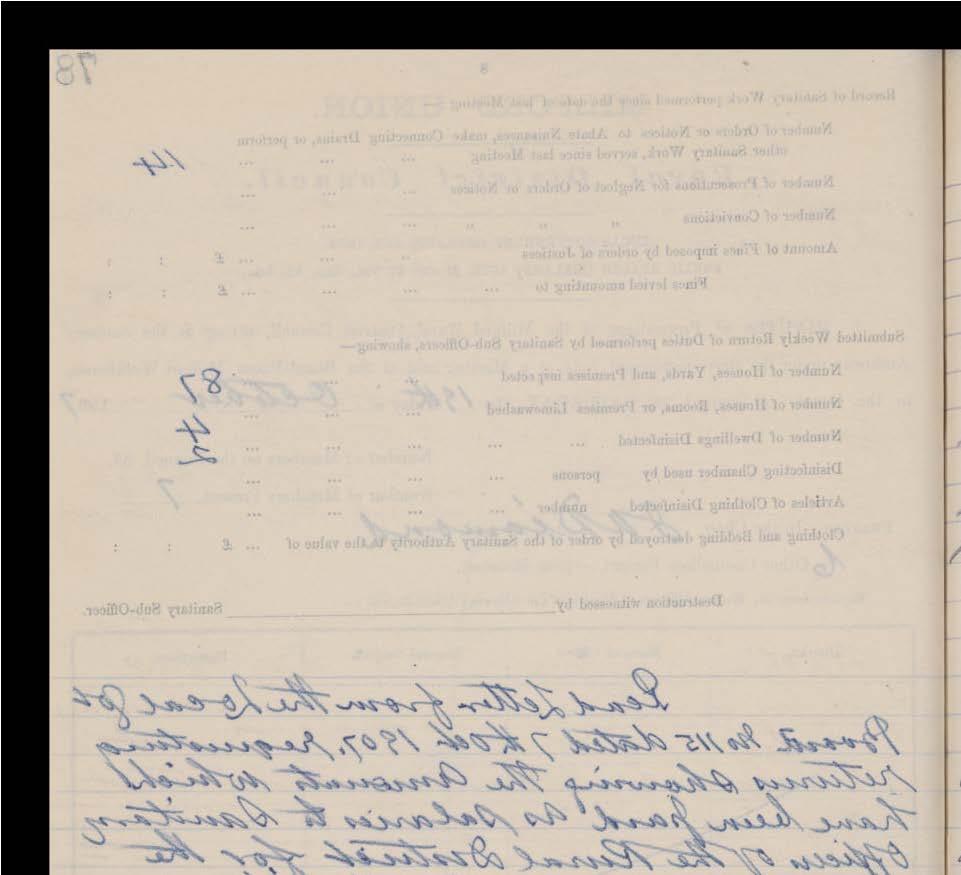 8
Record of Sanitary Work performed since the date of last Meeting
Number of Orders or Notices to Abate Nuisances, make Connecting Drains, or perform
other Sanitary Work, served since last Meeting ... ... ... 14
Number of Prosecutions for Neglect of Orders or Notices ... ... ...
Number of Convictions " " " ... ... ...
Amount of Fines imposed by orders of Justices ... ... ... £ : :
Fines levied amounting to ... ... ... ... £ : :
Submitted Weekly Return of Duties performed by Sanitary Sub-Officers, showing—
Number of Houses, Yards, and Premises inspected ... ... ...
Number of Houses, Rooms, or Premises Limewashed ... ... ...
Number of Dwellings Disinfected ... ... ... ... ... 4
Disinfecting Chamber used by persons ... ... ... ... 2
Articles of Clothing Disinfected number ... ... ... ...
Clothing and Bedding destroyed by order of the Sanitary Authority to the value of ... £ : :
Destruction witnessed by Sanitary Sub-Officer.
Read Letter from the Local Govt
Board No 115 dated 7th Oct 1907, requesting
returns showing the amounts which
have been paid as Salaries to Sanitary
Officers of the Rural District for the